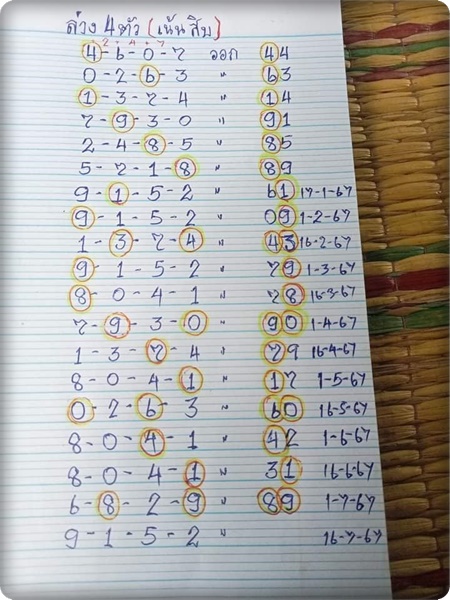 ล่าง 4 ตัว (เน้นสิบ)
+ 2 + 4 + 7
4 - 6 - 0 - 7 ออก 44
0 - 2 - 6 - 3 " 63
1 - 3 - 7 - 4 " 14
7 - 9 - 3 - 0 " 91
2 - 4 - 8 - 5 " 85
5 - 7 - 1 - 8 " 89
9 - 1 - 5 - 2 " 61 17-1-67
9 - 1 - 5 - 2 " 09 1-2-67
1 - 3 - 7 - 4 " 43 16-2-67
9 - 1 - 5 - 2 " 79 1-3-67
8 - 0 - 4 - 1 " 78 16-3-67
7 - 9 - 3 - 0 " 90 1-4-67
1 - 3 - 7 - 4 " 79 16-4-67
8 - 0 - 4 - 1 " 17 1-5-67
0 - 2 - 6 - 3 " 60 16-5-67
8 - 0 - 4 - 1 " 42 1-6-67
8 - 0 - 4 - 1 " 31 16-6-67
6 - 8 - 2 - 9 " 89 1-7-67
9 - 1 - 5 - 2 " 16-7-67